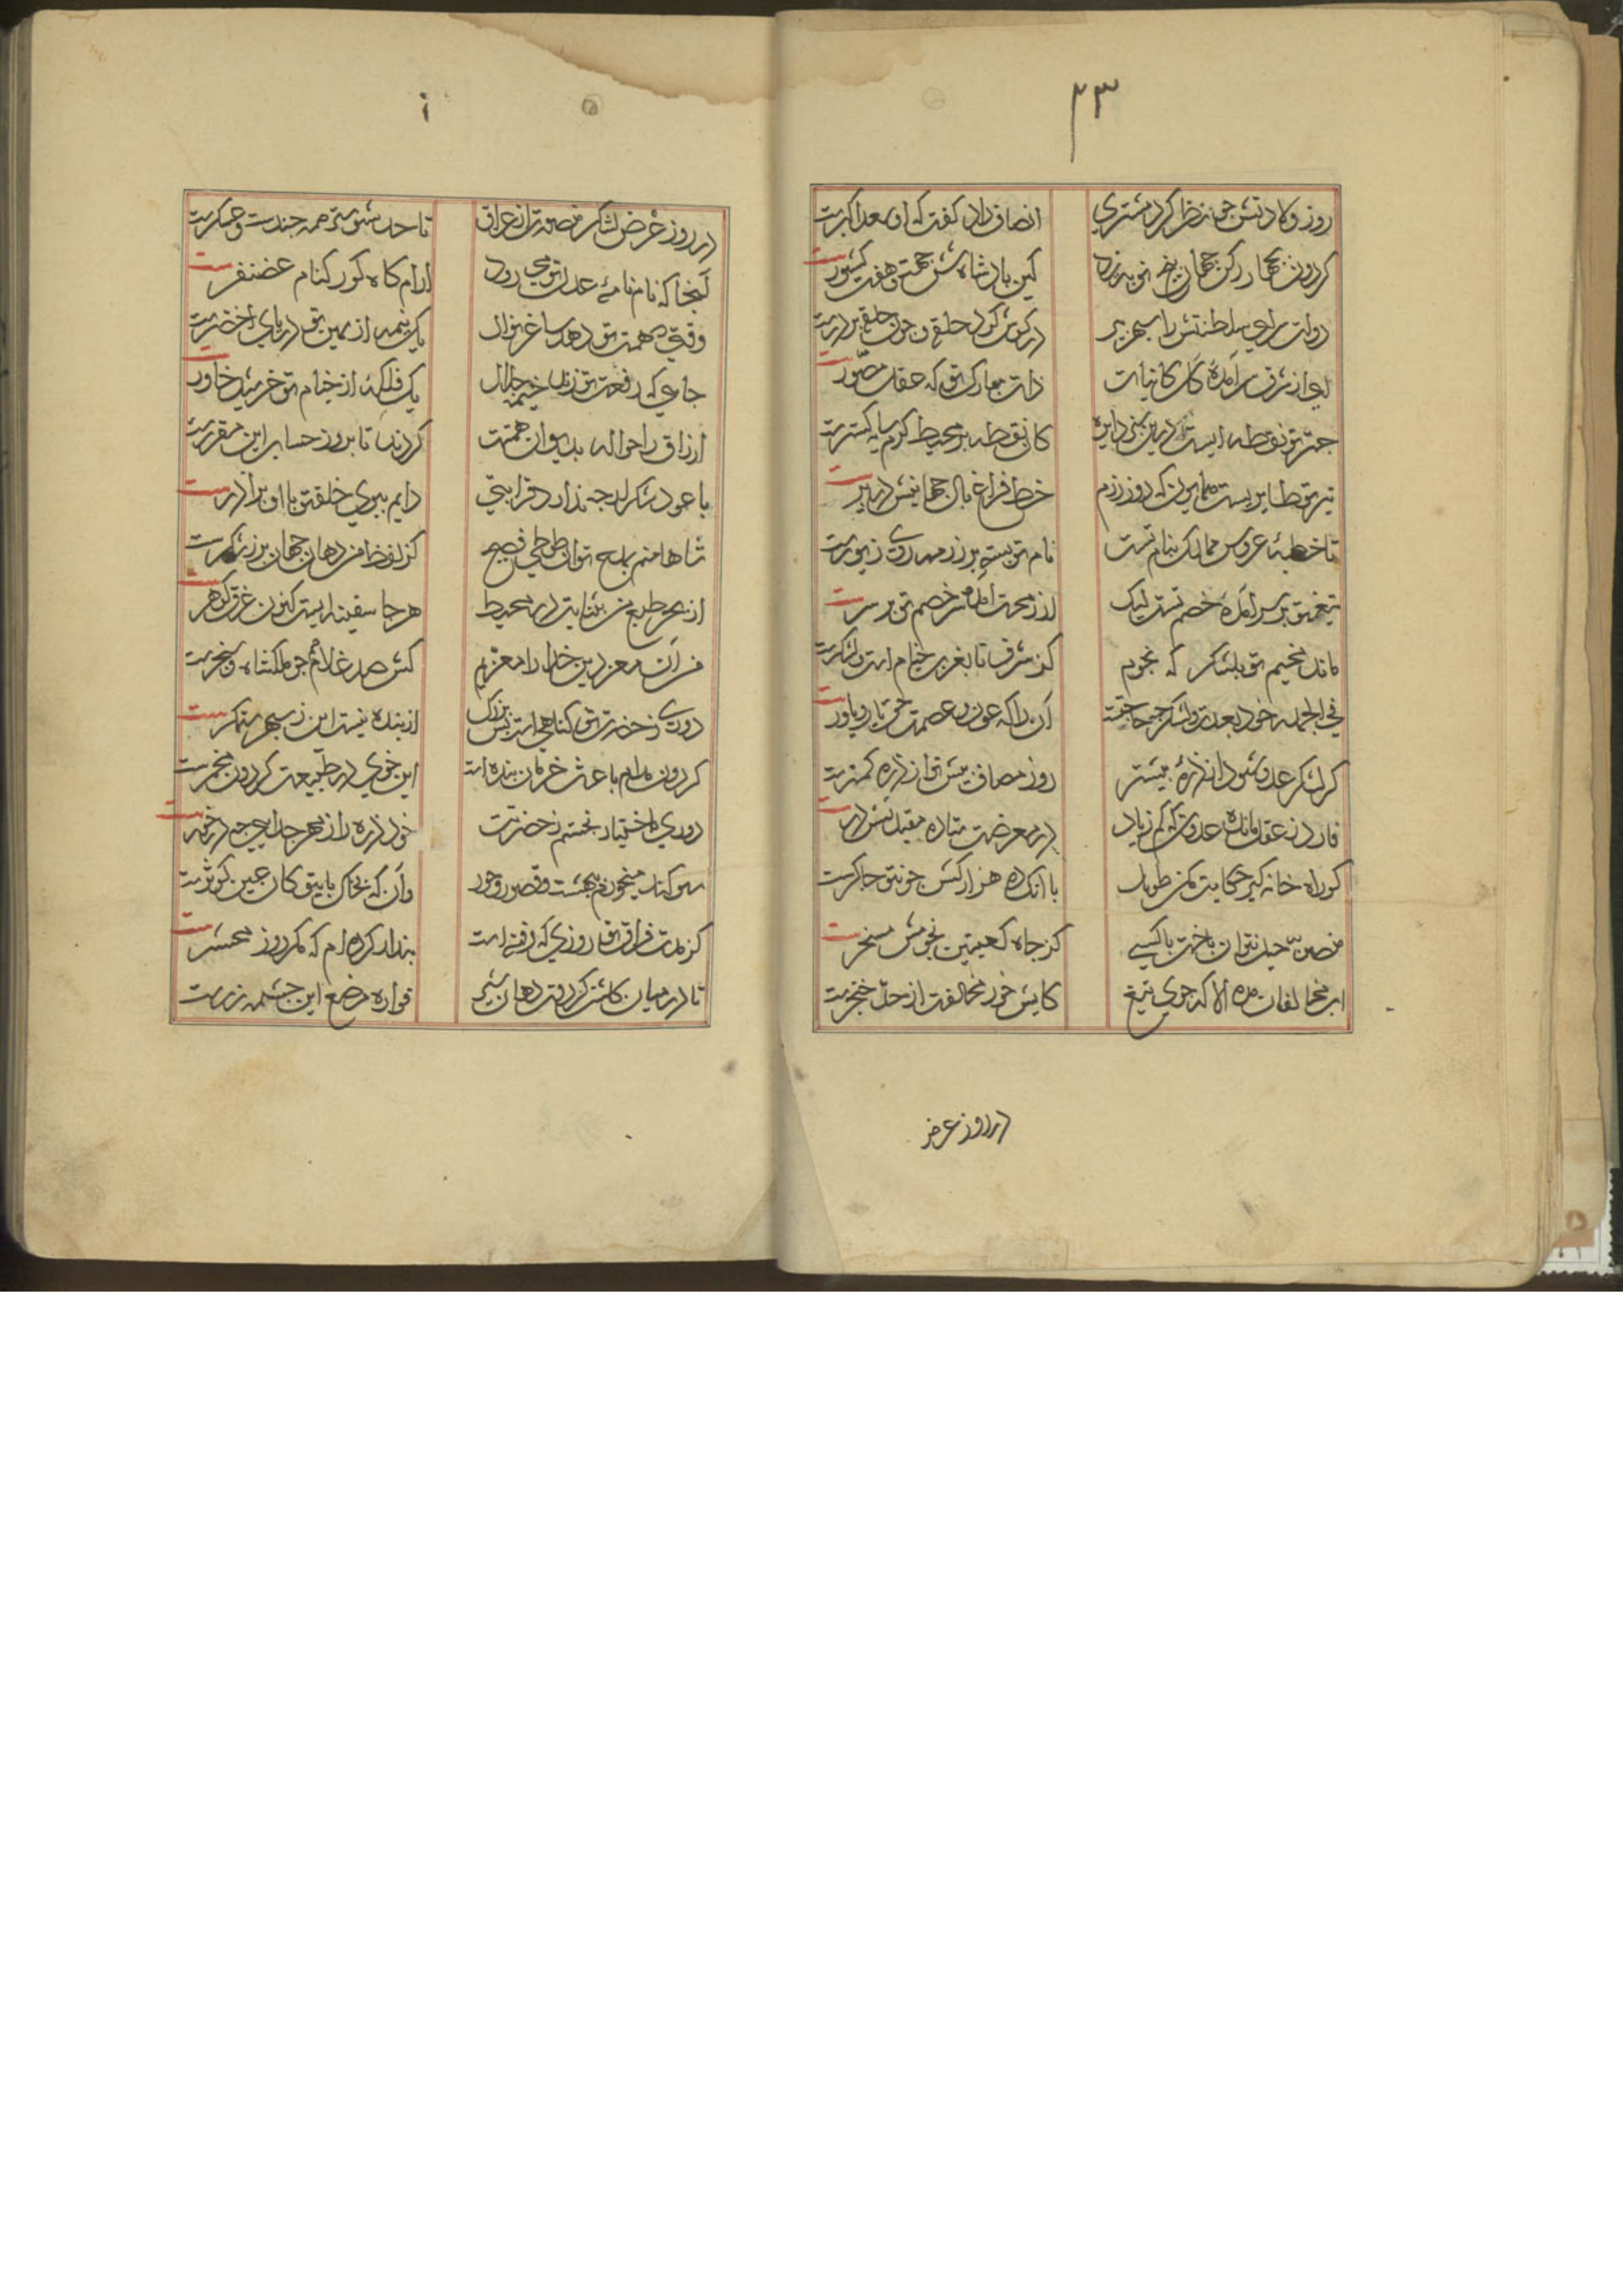 ۴۳
روز ولادتش چو نظر کرد مشتری انصاف داد گفت که او سعد اکبرست
کین پادشاه شش جهت و هفت کشورست
دولت سرای سلطنتش را سپهر پیر در گوش کرد حلقه و چون حلقه بر درست
ای از شرف سرآمدهٔ کل کاینات ذات مبارک تو که عقل مصورست
چتر تو نقطه ایست درین دایره کان نقطه بر محیط کرم سایه گسترست
تیر تو طایریست همایون که روز رزم خط فراغ بال جهانیش در پرست
تا خطبهٔ عروس ممالک بنام تست نام تو بسته بر زر و زیورست
تیغ تو بر سر آمدهٔ خصم تست لیک از زحمت سر خصم تو بر سرست
ماند مخیم تو بلشکر که نجوم کز شرق تا بغرب خیام است و لشکرست
فی الجمله خود بعدت و لشکر چه حاجتست آن را که عون و عصمت حق یار و یاورست
گر لشکر عدو شود از ذره بیشتر روز مصاف پیش تو از ذره کمترست
با آنکه ده هزار کش چون تو چاکرست
منصوبه حیل نتوان باخت با کسی کز جاه کعبتین نجومش مسخرست
آب مخالفان مده الا که جوی تیغ کایش خور مخالفت از حد خنجرست
در روز عرض
در روز عرض لشکر منصوبه از عراق تا حد همه جندست و عسکرست
آنجا که نام نامهٔ عدل تو می رود آرام گاه گور کنام غضنفرست
وقتی که همت تو دهد ساغر نوال یک نیمه از یمین تو دریای اخضرست
جایی که رفعت تو زند خیمه جلال یک فلکه از خیام تو خورشید خاورست
ارزاق را حواله بدیوان همتت کردند تا بروز حساب این مقررست
با عود شکر ارچه ندارد قرابتی دایم ببوی خلقت با او برادرست
شاها منم بمدح تو آن طوطی فصیح کز لفظ من دهان جهان پر ز شکرست
از بحر طبع من بثنایت در محیط هر جا سفینه ایست کنون غرق گوهرست
فر آن معز دین خدا را معزیم کش صد غلام چو ملکشاه و سنجرست
دوری ز حضرت تو گناهی است بس بزرگ از بنده نیست این ز سپهر ستمگرست
گردون مدام باعث حرمان بنده است این خوی در طبیعت گردون مخمرست
دوری باختیار نجستم ز حضرتت خود ذره را ز مهر جدایی چه درخورست
سوگند میخورم ببهشت و قصور و حور وآن که بخاک پای تو کان عین کوثرست
کز مدت فراق تو روزی که رفته است پندار کرده ام که مگر روز محشرست
تا در میان گلشن گردون دهان شیر فواره مرصع این چشمه زرست